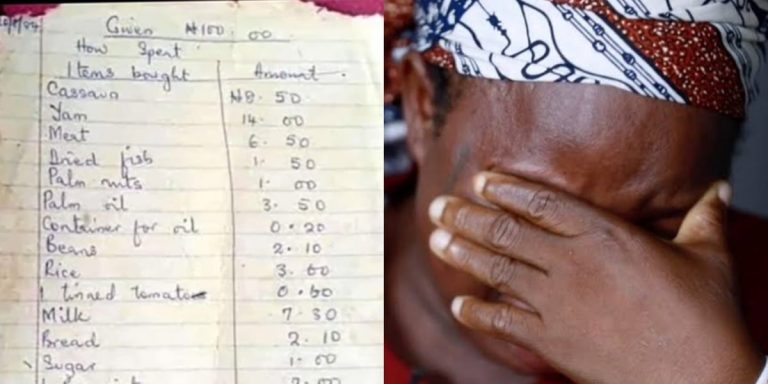 Given ₦100.00
How Spent
Items bought Amount.
Cassava ₦8.50
Yam 14.00
Meat 6.50
Dried fish 1.50
Palm nuts 1.00
Palm oil 3.50
Container for oil 0.20
Beans 2.10
Rice 3.60
1 tinned tomato 0.60
Milk 7.30
Bread 2.10
Sugar 1.00
2.00